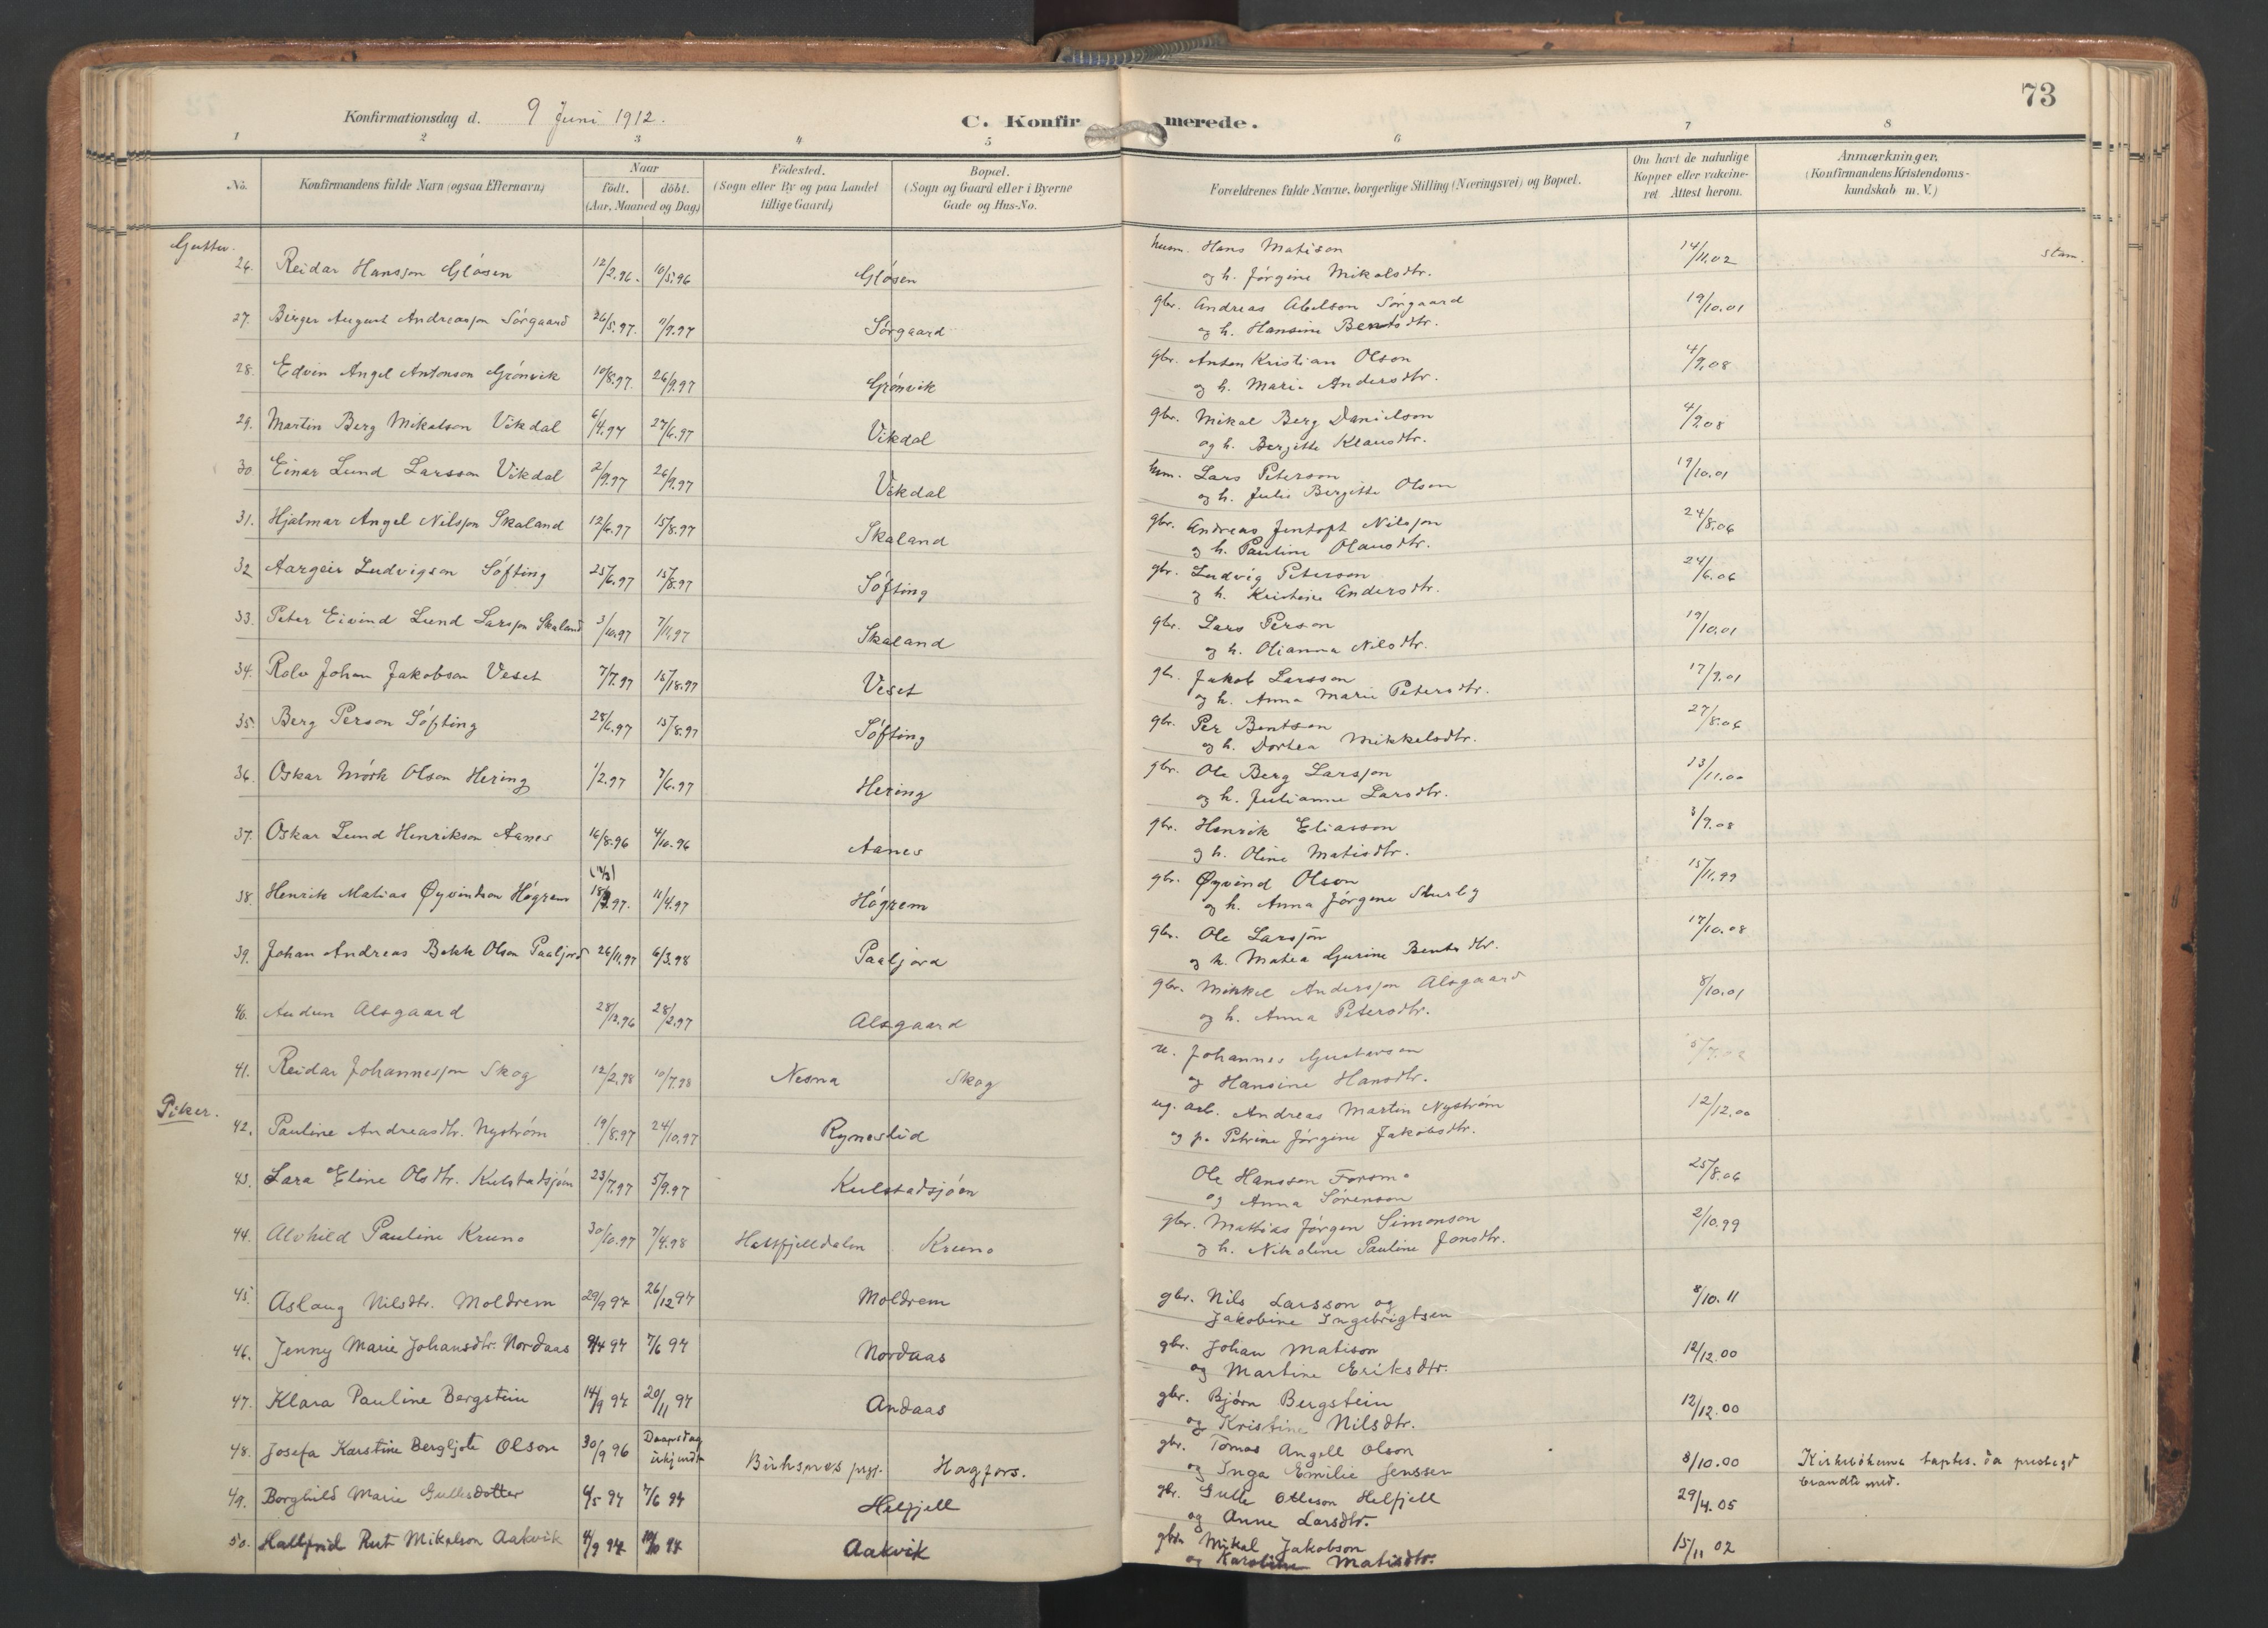 73
Konfirmationsdag d. 9 Juni 1912.
C. Konfirmerede.
1 2 3 4 5 6 7 8
No.
Konfirmandens fulde Navn (ogsaa Efternavn)
Naar
födt. döbt.
(Aar, Maaned og Dag)
Födested.
(Sogn eller By og paa Landet
tillige Gaard)
Bopæl.
(Sogn og Gaard eller i Byerne
Gade og Hus-No.
Forældrenes fulde Navne, borgerlige Stilling (Næringsvei) og Bopæl.
Om havt de naturlige
Kopper eller vakcine-
ret Attest herom.
Anmærkninger,
(Konfirmandens Kristendoms-
kundskab m. V.)
Gutter.
26. Reidar Hansson Glösen 12/2.96. 10/5.96 Glösen husm. Hans Matison 14/11.02 stam.
og h. Jörgine Mikalsdtr.
27. Birger August Andreasson Sörgaard 26/5.97. 11/7.97 Sörgaard gbr. Andreas Abelson Sörgaard 19/10.01
og h. Hansine Bentsdtr.
28. Edvin Angel Antonson Grönvik 10/8.97. 26/9.97 Grönvik gbr. Anton Kristian Olson 4/9.08
og h. Marie Andersdtr.
29. Martin Berg Mikalson Vikdal 6/4.97 27/6.97 Vikdal gbr. Mikal Berg Danielson 4/9.08
og h. Bergitte Klausdtr.
30 Einar Lund Larsson Vikdal 2/9.97 26/9.97 Vikdal hum. Lars Peterson 19/10.01
og h. Julie Bergitte Olson
31. Hjalmar Angel Nilsson Skaland 12/6.97 15/8.97 Skaland gbr. Andreas Jentoft Nilsson 24/8.06
og h. Pauline Olausdtr.
32 Aargeir Ludvigson Söfting 25/6.97 15/8.97 Söfting gbr. Ludvig Peterson 24/6.06
og h. Kristine Andersdtr.
33. Peter Eivind Lund Larsson Skaland 3/10.97 7/11.97 Skaland gbr. Lars Person 19/10.01
og h. Olianna Nilsdtr.
34. Rolv Johan Jakobson Veset 7/7.97 15/8.97 Veset gbr. Jakob Larsson 17/9.01
og h. Anna Marie Petersdtr.
35. Berg Person Söfting 28/6.97 15/8.97 Söfting gbr. Per Bentson 27/8.06
og h. Dortea Mikkelsdtr.
36. Oskar Mörk Olson Hering 1/2.97 7/6.97 Hering gbr. Ole Berg Larsson 13/11.00
og h. Julianne Larsdtr.
37. Oskar Lund Henrikson Aanes 16/8.96 4/10.96 Aanes gbr. Henrik Eliasson 3/9.08
og h. Oline Matisdtr.
38 Henrik Matias Øyvindson Högrem 18/2.97. 11/4.97 Högrem gbr. Øyvind Olson 15/11.99
og h. Anna Jörgine
39. Johan Andreas Bakk Olson Paaljord 26/11.97 6/3.98 Paaljord gbr. Ole Larsson 17/10.08
og h. Matea Gurine Bentsdtr.
40. Audun Alsgaard 28/12.96 28/2.97 Alsgaard gbr. Mikkel Andersson Alsgaard 8/10.01
og h. Anna Petersdtr.
41. Reidar Johannesson Skog 12/2.98 10/7.98 Nesna Skog u. Johannes Gustavson
og Hansine Hansdtr.
Piker.
42. Pauline Andreasdtr. Nyström 19/8.97 24/10.97 Ryneslid ug. arb. Andreas Martin Nyström 12/12.00
og p. Petrine Jörgine Jakobsdtr.
43. Lara Eline Olsdtr. Kulstadsjöen 23/7.97 5/9.97 Kulstadsjöen Ole Hansson Forsmo 25/8.06
og Anna Sörenson
44. Alvhild Pauline Kruno 30/10.97 7/4.98 Hatfjelldalen Kruno gbr. Mathias Jörgen Simonson 2/10.99
og h. Nikoline Pauline Jonsdtr.
45. Aslaug Nilsdtr. Moldrem 29/9 97 26/12 97 Moldrem gbr. Nils Larsson og 8/10.11
Jakobine Ingebrigtsen
46. Jenny Marie Johansdtr. Nordaas 9/4 97 7/6 97 Nordaas gbr. Johan Matison 12/12.00
og Martine Eriksdtr.
47. Klara Pauline Bergstein 14/9 97 20/11 97 Andaas gbr. Bjørn Bergstein 12/12.00
og Kristine Nilsdtr.
48. Josefa Karstine Bergljote Olson 30/9 96 Daapsdag ukjendt Birksnes prgj. Hagfors. gbr. Tomas Angell Olson 8/10.00 Kirkebökerne taptes. da prestegd
og Inga Emilie Jenssen brandte ned.
49. Borghild Marie Gullesdotter 6/5 97 7/6 97 Helfjell gbr. Gulle Otteson Helfjell 29/4.05
og Anne Larsdtr.
50. Hallfrid Rut Mikalson Aakvik 4/9 97 10/10 97 Aakvik gbr. Mikal Jakobson 15/11 02
og Karoline Matisdtr.